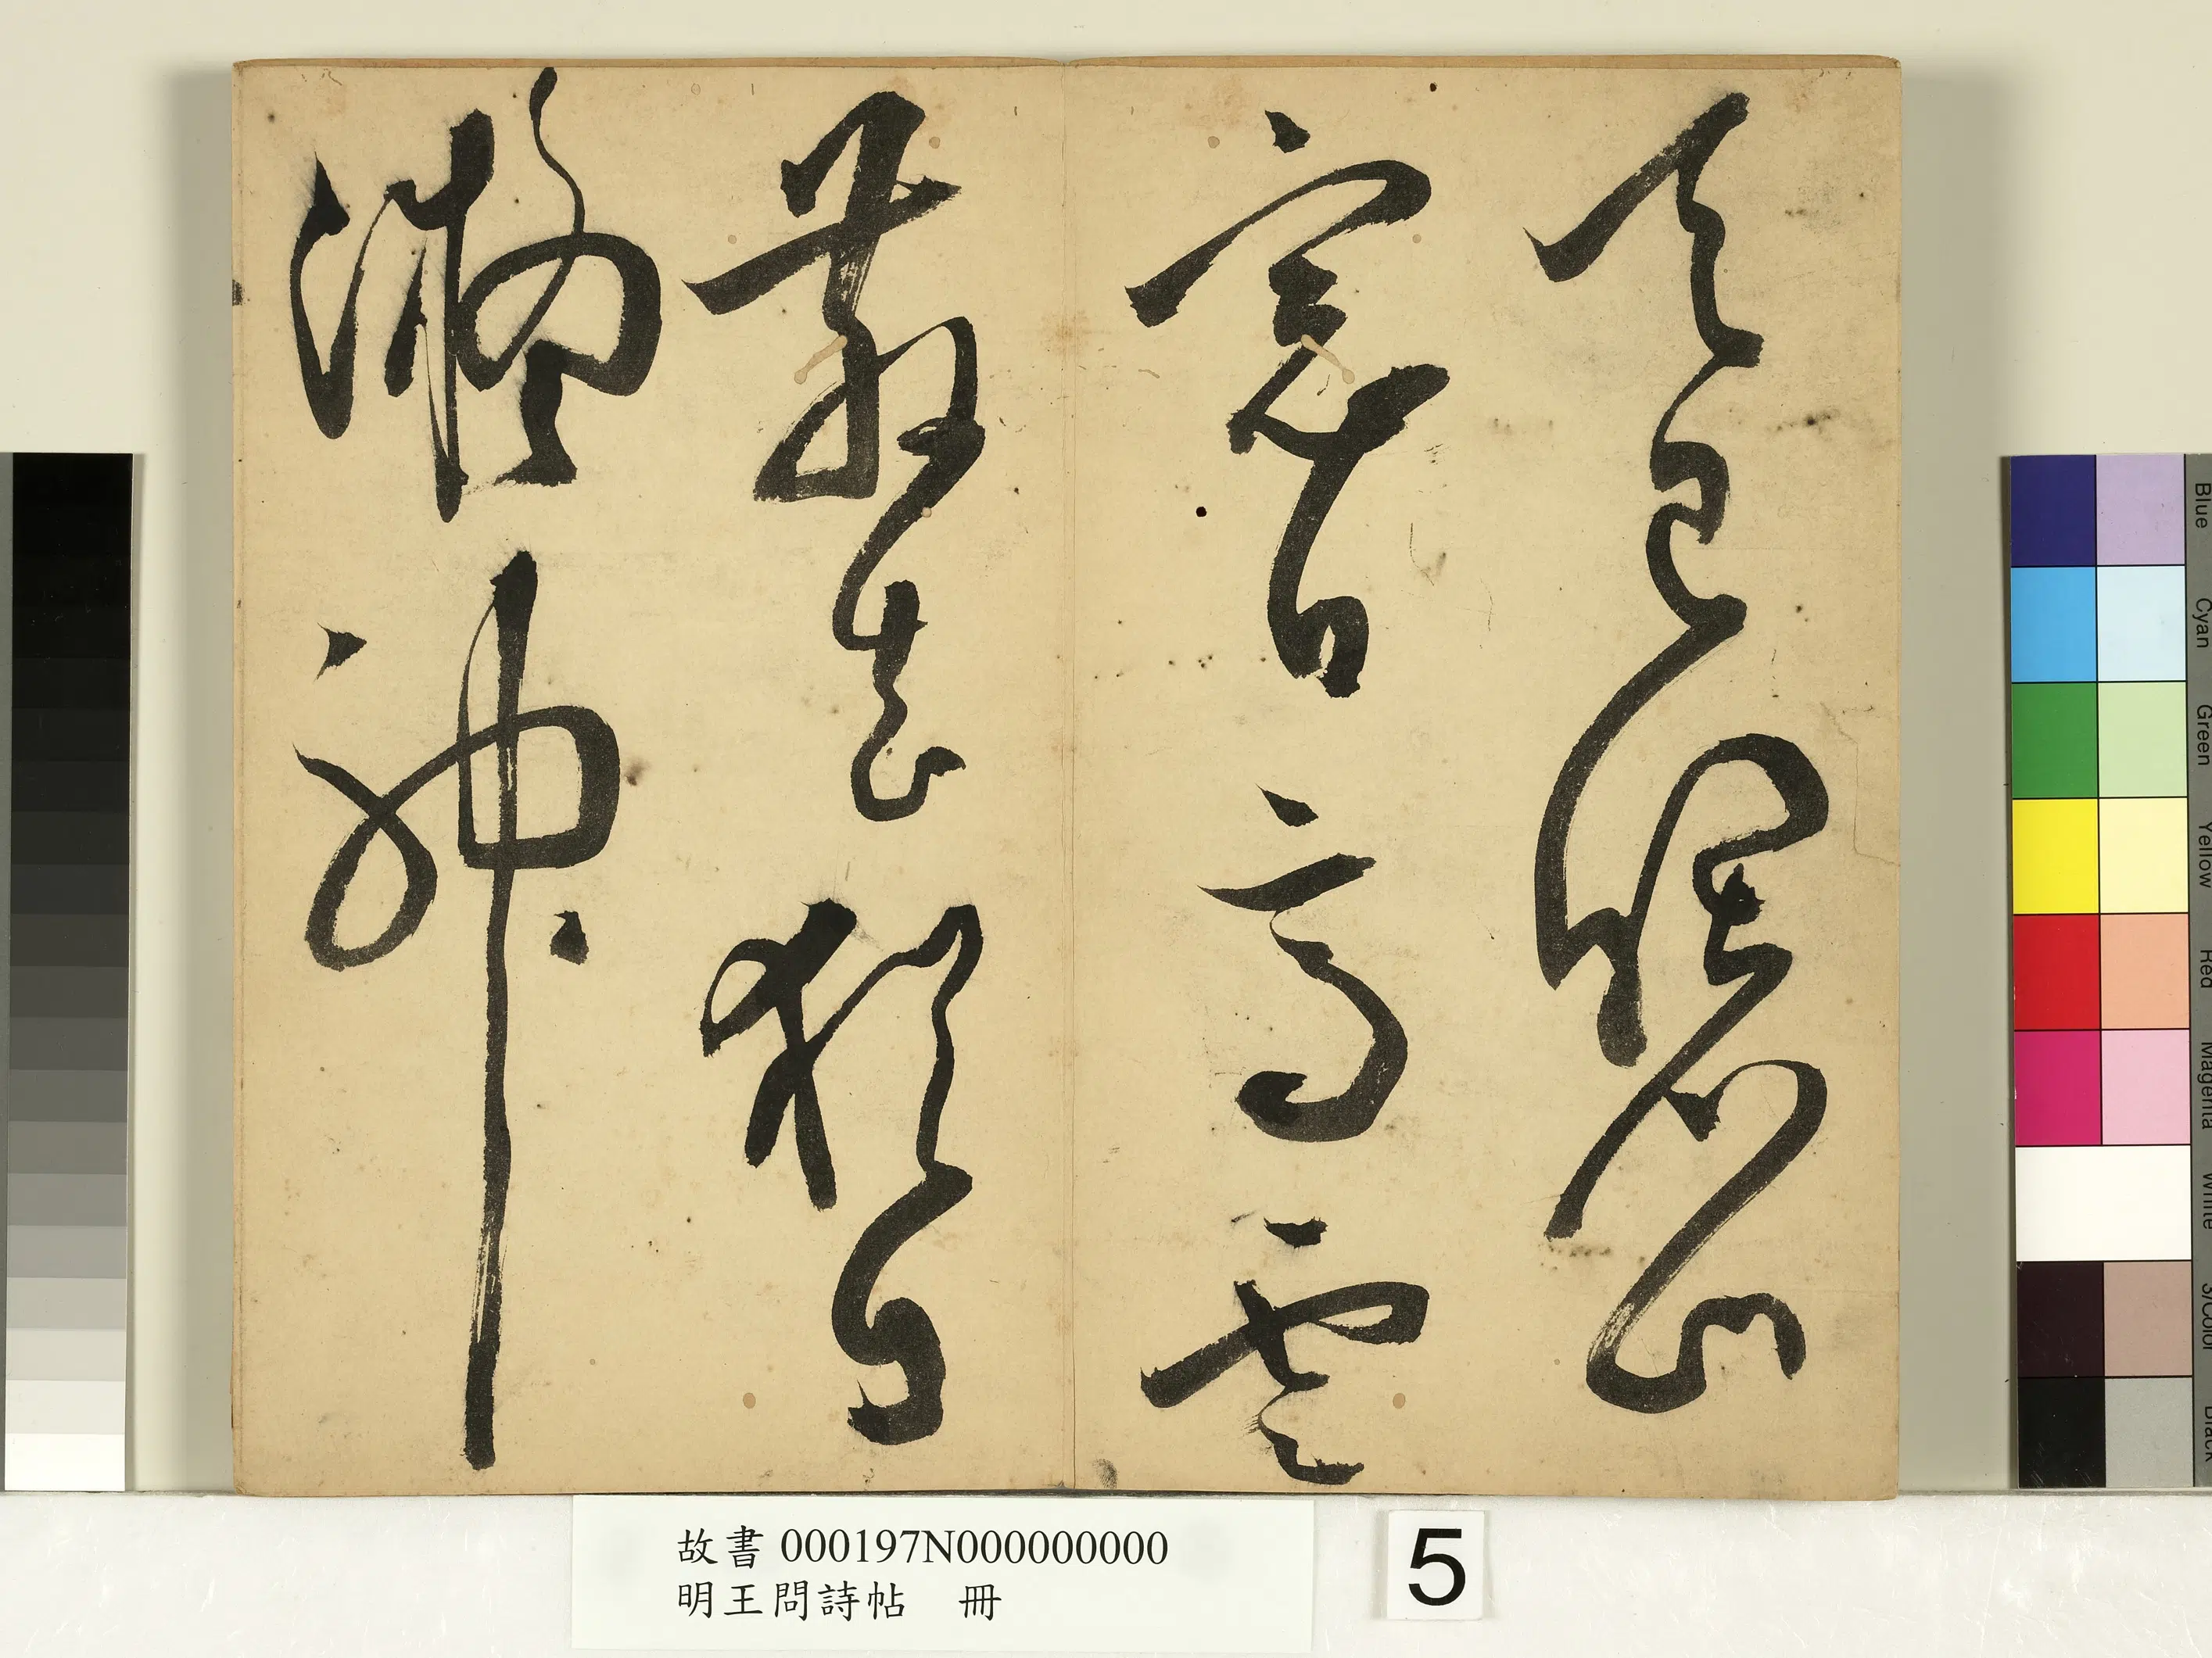 天
窗日高雲
散去猶自
凝神
故書 000197N000000000
明王問詩帖 冊
5
Blue
Cyan
Green
Yellow
Red
Magenta
White
3/Color
Black